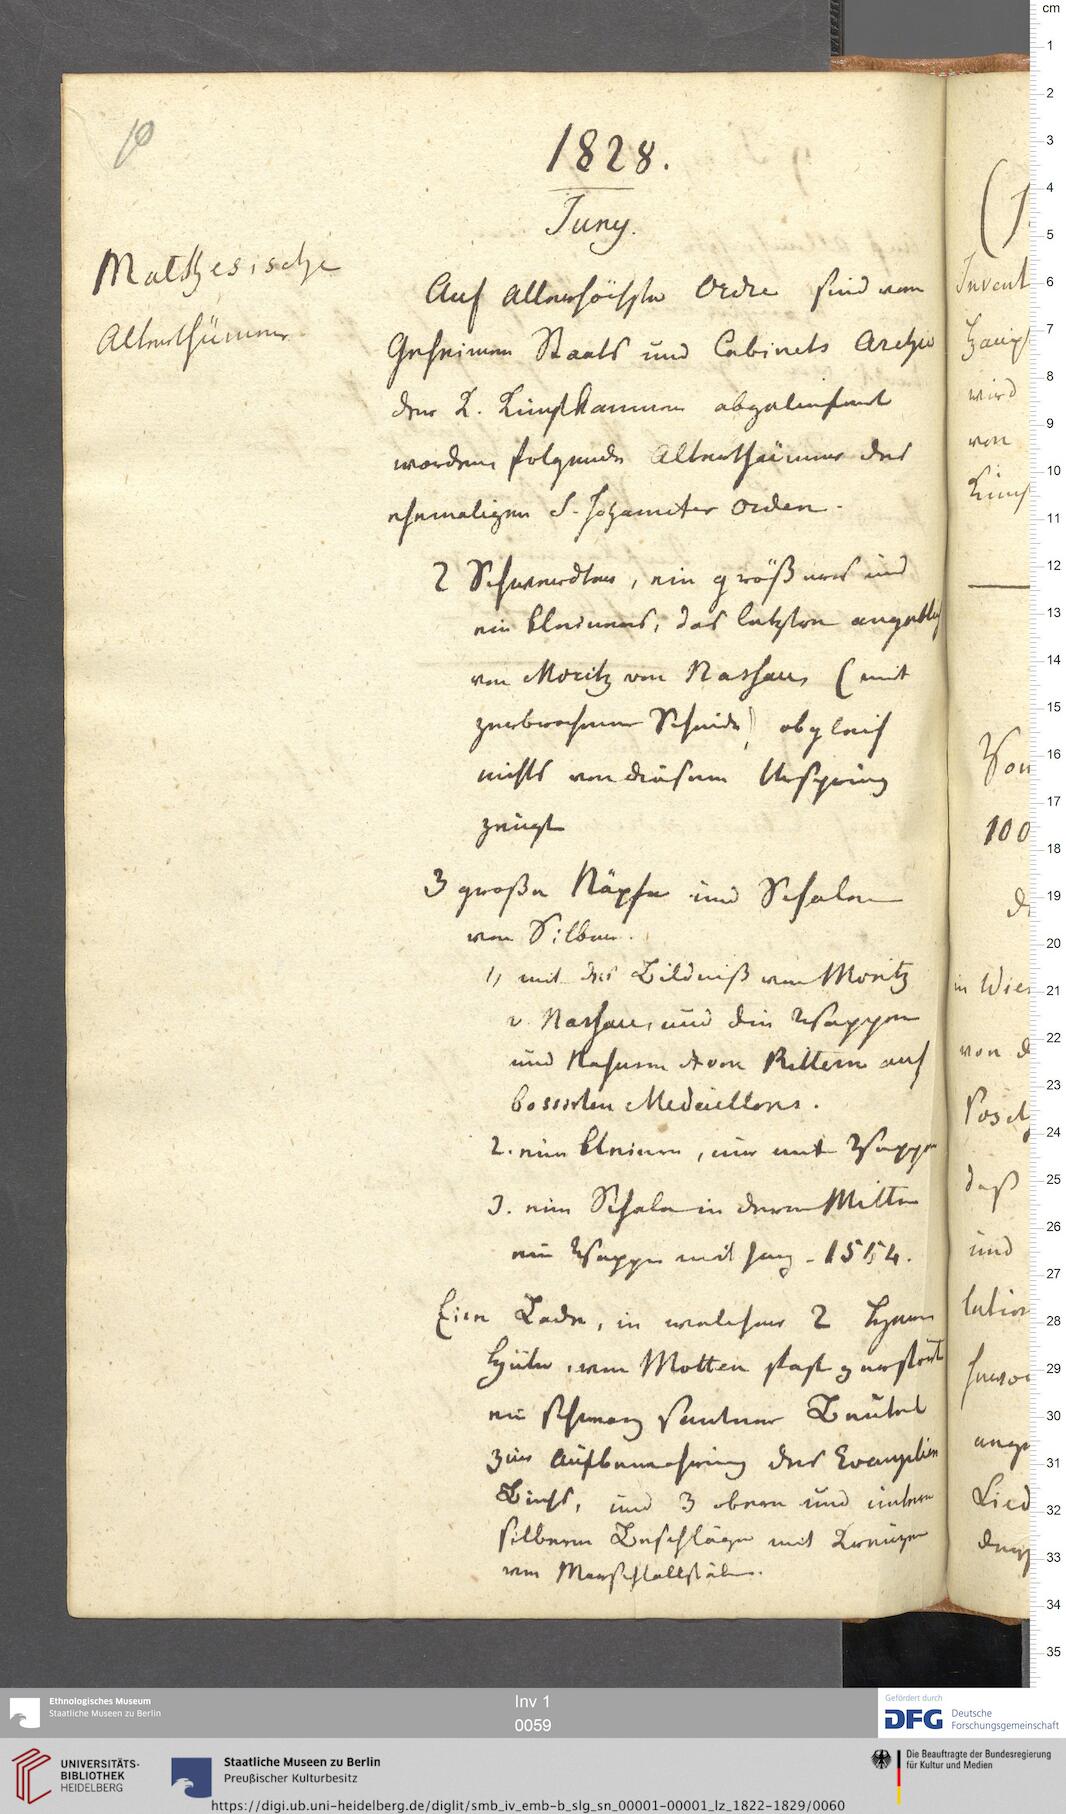 10
1828.
Juny.
Malthesische
Alterthümer.
Auf Allerhöchste Ordre sind vom
Geheimen Staats und Cabinets Archiv
der K. Kunstkammer abgeliefert
worden folgende Alterthümer des
ehemaligen S. Johanniter Orden.
2 Schwerdter, ein größeres und
ein kleineres, das letztere angeblich
von Moritz von Nassau, (mit
zerbrochener Scheide) obgleich
nichts von diesem Ursprung
zeugt
3 große Näpfe und Schalen
von Silber.
1, mit des Bildniß von Moritz
v. Nassau, und den Wappen
und Nahmen von Rittern auf
bossirten Medaillons.
2. eine kleinere, nur mit Wappen
3. eine Schale in deren Mitte
ein Wappen mit 1554.
Eine Lade, in welcher 2
Hüte, von Motten fast zerstört
ein schwarz samtner Beutel
zur Aufbewahrung des Evangelien
Buchs, und 3 obere und untere
silberne Beschläge mit Kreuzen
von Marschallstäben.
(J
Invent
Haupt
wird
von
Kunst
Von
100
in Wien
von d
daß
und
lation
Lied
cm
1
2
3
4
5
6
7
8
9
10
11
12
13
14
15
16
17
18
19
20
21
22
23
24
25
26
27
28
29
30
31
32
33
34
35
Ethnologisches Museum
Staatliche Museen zu Berlin
Inv 1
0059
Gefördert durch
DFG Deutsche
Forschungsgemeinschaft
UNIVERSITÄTS-
BIBLIOTHEK
HEIDELBERG
Staatliche Museen zu Berlin
Preußischer Kulturbesitz
Die Beauftragte der Bundesregierung
für Kultur und Medien
https://digi.ub.uni-heidelberg.de/diglit/smb_iv_emb-b_slg_sn_00001-00001_lz_1822-1829/0060